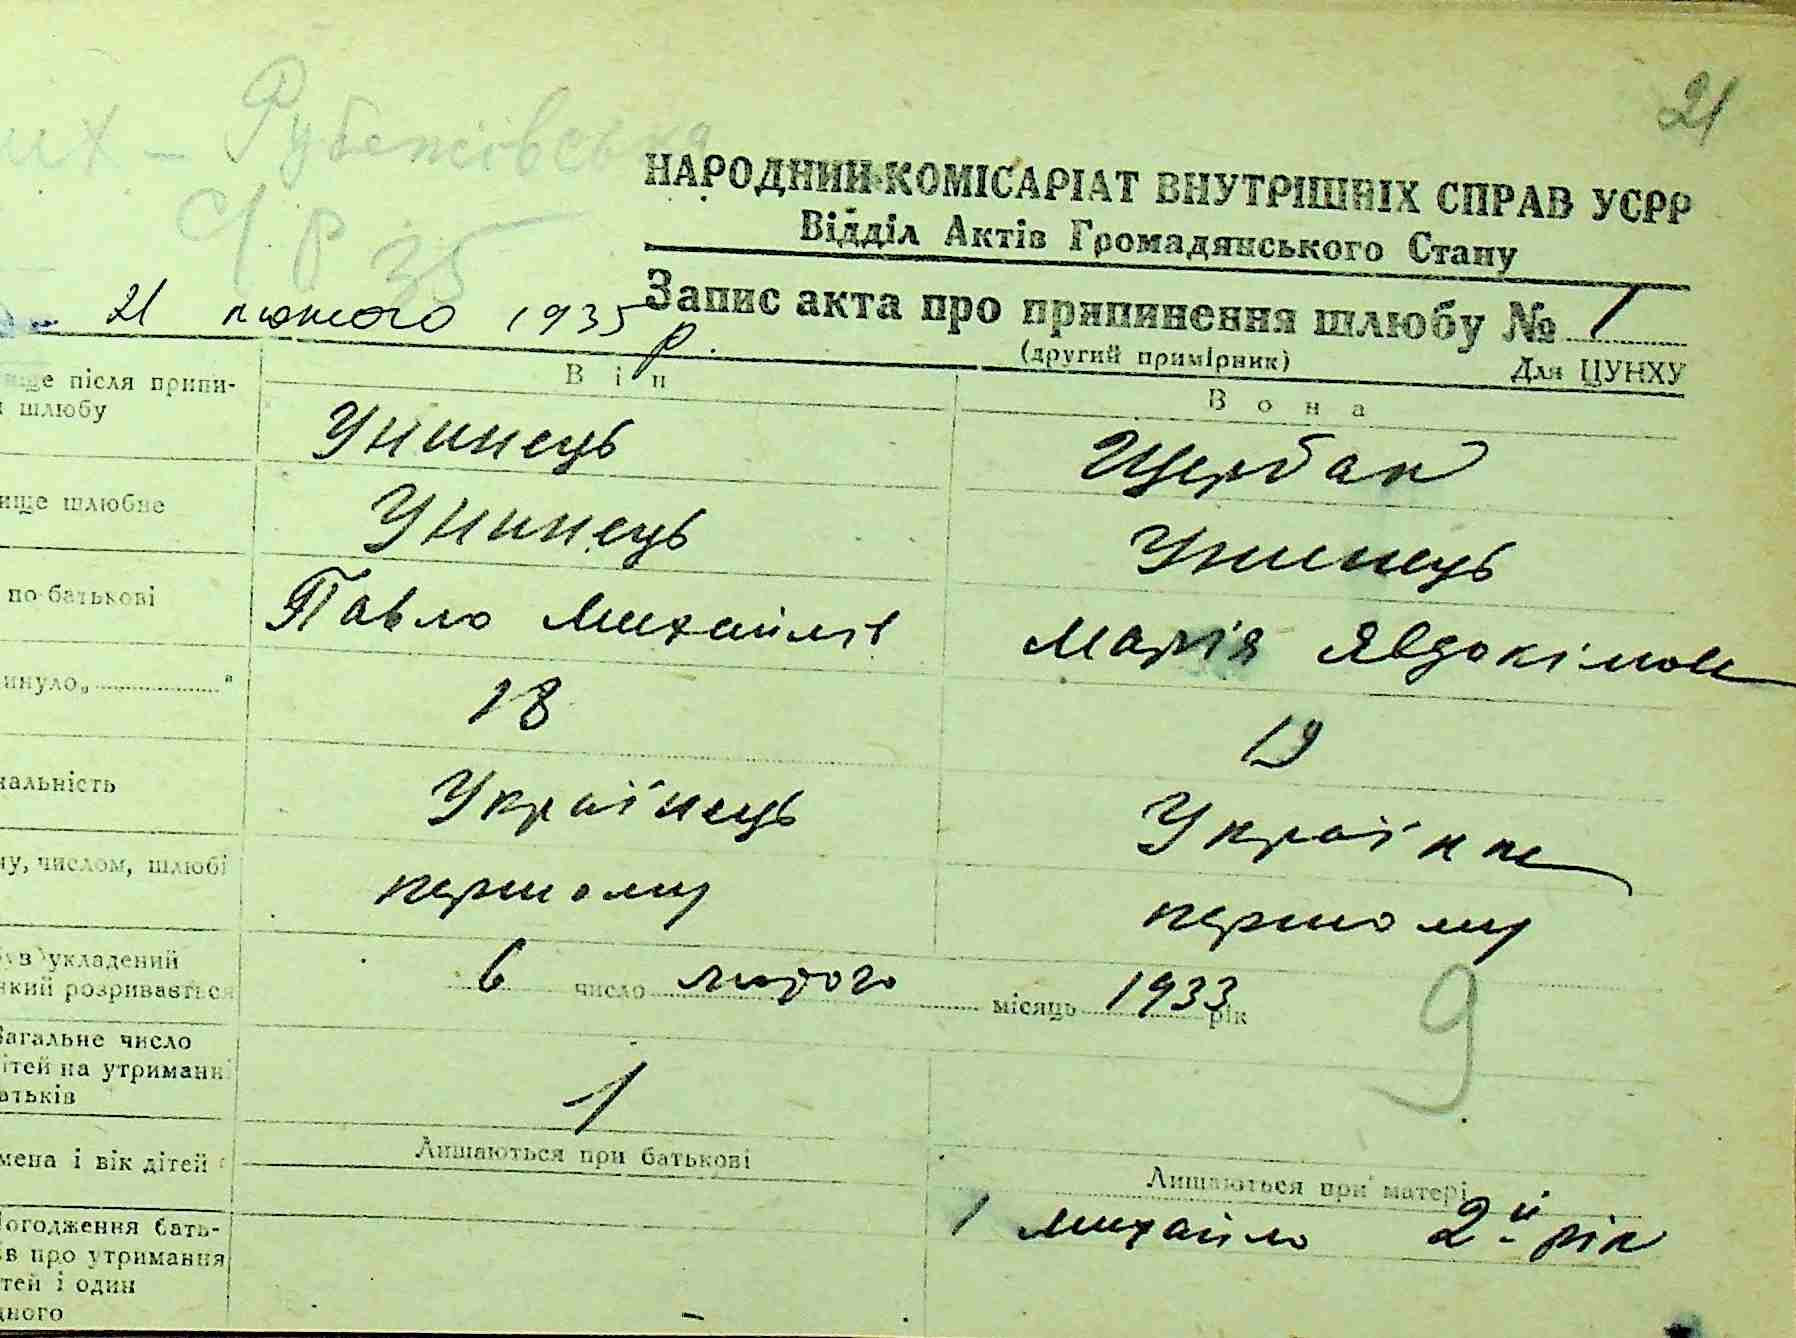 21
их - Рубежівська
с/р 35
НАРОДНИЙ КОМІСАРІАТ ВНУТРІШНІХ СПРАВ УСРР
Відділ Актів Громадянського Стану
21 лютого 1935 р.
Запис акта про припинення шлюбу № 1
(другий примірник) Для ЦУНХУ
ще після припи-
шлюбу
Він Вона
Унинець Щербак
ище шлюбне Унинець Унинець
по-батькові Павло Михайлів Марія Явдокімов
инуло „ " 18 19
нальність Українець Українка
му, числом, шлюбі першому першому
був укладений
який розривається
6 число лютого місяць 1933 рік
9
Загальне число
ітей на утриманні
атьків
1
мена і вік дітей Лишаються при батькові Лишаються при матері
1 Михайло 2-й рік
Погодження бать-
ів про утримання
тей і один
дного
-